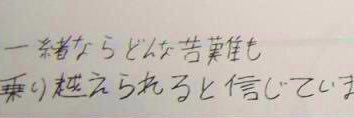 一緒ならどんな苦難も
乗り越えられると信じていま